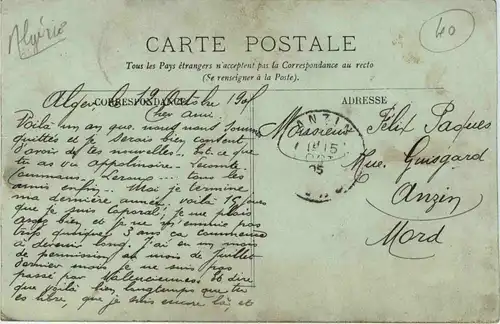 Algérie
40
CARTE POSTALE
Tous les Pays étrangers n'acceptent pas la Correspondance au recto
(Se renseigner à la Poste).
CORRESPONDANCE
ADRESSE
Alger le 12 Octobre 190
Cher ami.
Voilà un an que nous nous sommes
quittés et je serais bien content
d'avoir de tes nouvelles. Est-ce que
tu as vu
tous les
amis enfin. Moi je termine
ma dernière année. voilà 15 jours
que je suis caporal, je me plais
assez bien et je ne m'ennuie pas
trop quoique 3 ans ça commence
à devenir long. J'ai eu un mois
de permission au mois de Juillet
dernier mais je ne suis pas
passé par Valenciennes. Et dire
que voilà bien longtemps que tu
es libre, que je suis encore là, et
ANZIN
15
OCT
05
Monsieur Félix Paques
Rue Guisgard
Anzin
Nord